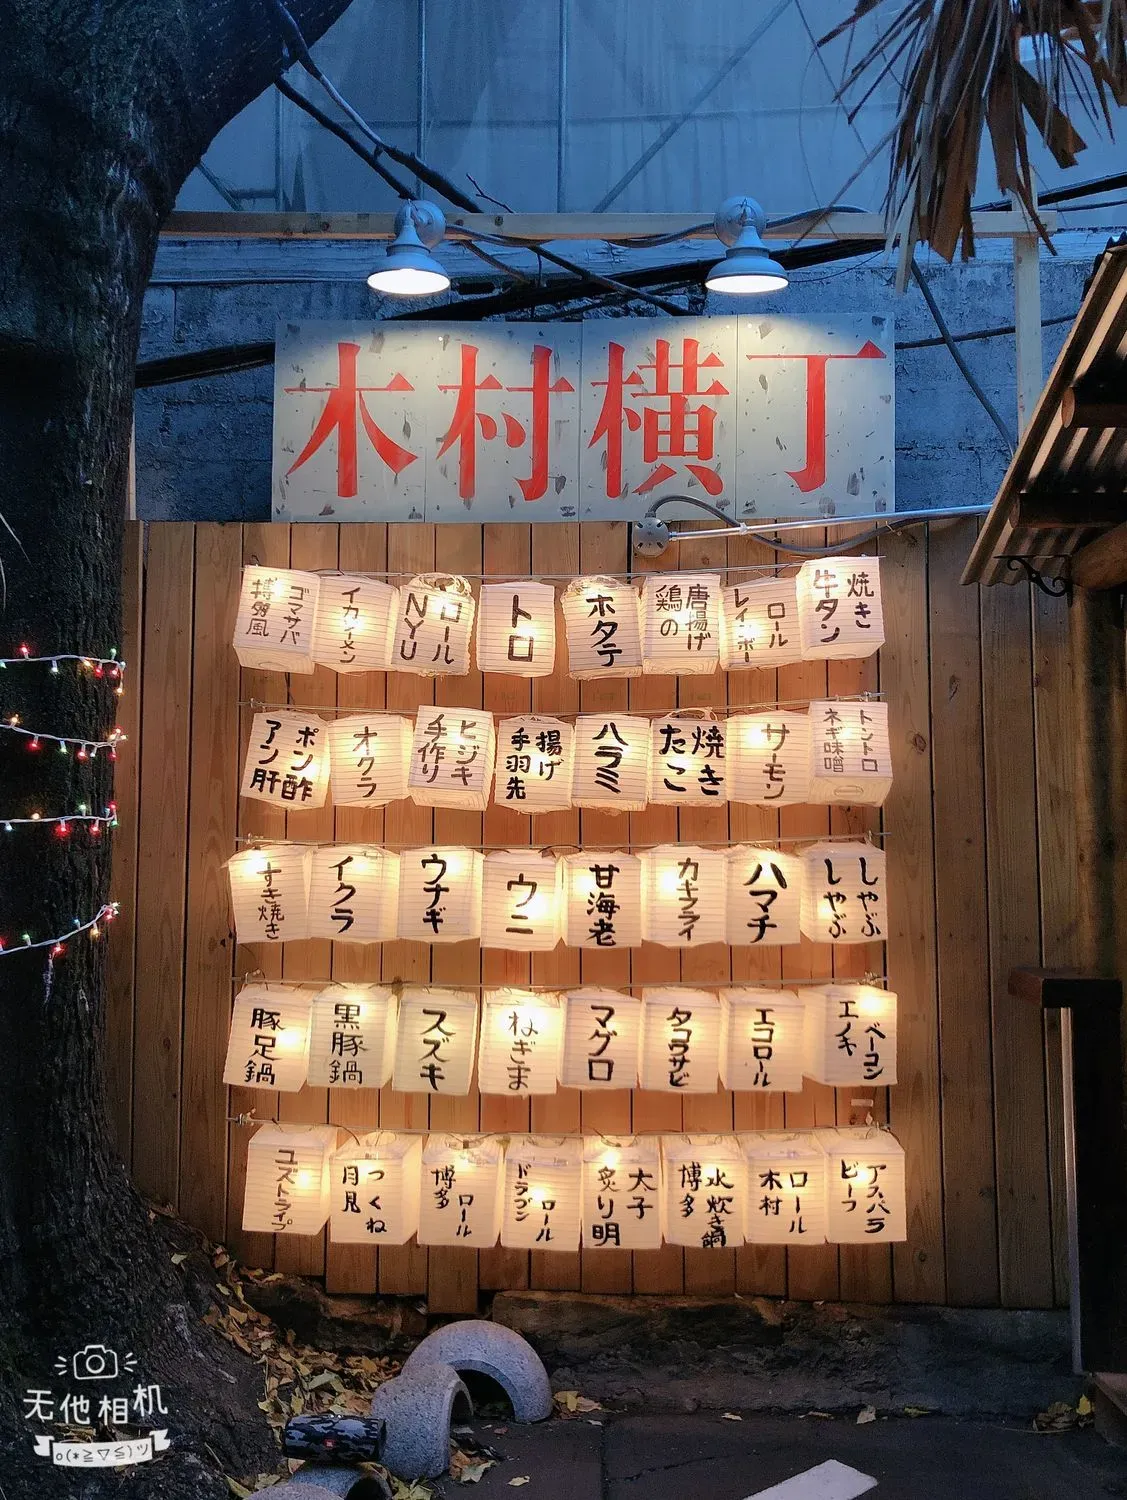 木村横丁
博多風
ゴマサバ
イカソーメン
NYU
ロール
トロ
ホタテ
鶏の
唐揚げ
レインボー
ロール
牛タン
焼き
アン肝
ポン酢
オクラ
手作り
ヒジキ
手羽先
揚げ
ハラミ
たこ
焼き
サーモン
ネギ味噌
トントロ
すき焼き
イクラ
ウナギ
ウニ
甘海老
カキフライ
ハマチ
しゃぶ
しゃぶ
豚足鍋
黒豚鍋
スズキ
ねぎま
マグロ
タコワサビ
エコロール
エノキ
ベーコン
ユズトライプ
月見
つくね
博多
ロール
ドラゴン
ロール
炙り明
太子
博多
水炊き鍋
木村
ロール
ビーフ
アスパラ
无他相机
o(*≧▽≦)ツ